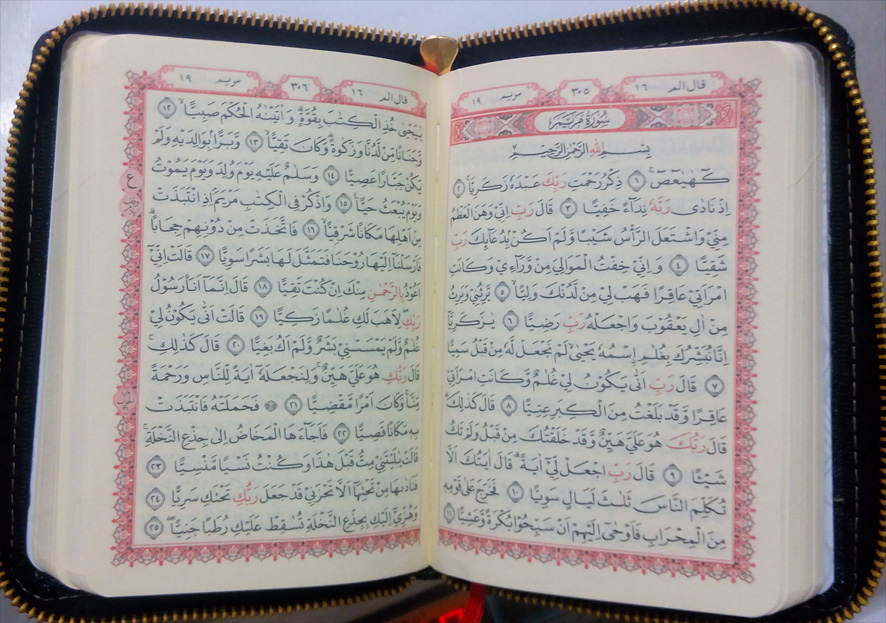 قال الم ١٦ ٣٠٥ مريم ١٩
سُورَةُ مَرْيَمَ
بِسْمِ اللهِ الرَّحْمٰنِ الرَّحِيمِ
كٓهٰيٰعٓصٓ ۚ ١ ذِكْرُ رَحْمَتِ رَبِّكَ عَبْدَهُ زَكَرِيَّا ۚ ٢
اِذْ نَادٰى رَبَّهُ نِدَآءً خَفِيًّا ٣ قَالَ رَبِّ اِنِّي وَهَنَ الْعَظْمُ
مِنِّي وَاشْتَعَلَ الرَّأْسُ شَيْبًا وَلَمْ اَكُنْ بِدُعَآئِكَ رَبِّ
شَقِيًّا ٤ وَاِنِّي خِفْتُ الْمَوَالِيَ مِنْ وَرَآءِي وَكَانَتِ
امْرَاَتِي عَاقِرًا فَهَبْ لِي مِنْ لَدُنْكَ وَلِيًّا ۙ ٥ يَرِثُنِي وَيَرِثُ
مِنْ اٰلِ يَعْقُوبَ وَاجْعَلْهُ رَبِّ رَضِيًّا ٦ يٰزَكَرِيَّآ
اِنَّا نُبَشِّرُكَ بِغُلٰمِ اِسْمُهُ يَحْيٰى لَمْ نَجْعَلْ لَهُ مِنْ قَبْلُ سَمِيًّا
٧ قَالَ رَبِّ اَنّٰى يَكُونُ لِي غُلٰمٌ وَكَانَتِ امْرَاَتِي
عَاقِرًا وَقَدْ بَلَغْتُ مِنَ الْكِبَرِ عِتِيًّا ٨ قَالَ كَذٰلِكَ
قَالَ رَبُّكَ هُوَ عَلَيَّ هَيِّنٌ وَقَدْ خَلَقْتُكَ مِنْ قَبْلُ وَلَمْ تَكُ
شَيْئًا ٩ قَالَ رَبِّ اجْعَلْ لِي اٰيَةً قَالَ اٰيَتُكَ اَلَّا
تُكَلِّمَ النَّاسَ ثَلٰثَ لَيَالٍ سَوِيًّا ١٠ فَخَرَجَ عَلٰى قَوْمِهِ
مِنَ الْمِحْرَابِ فَاَوْحٰى اِلَيْهِمْ اَنْ سَبِّحُوا بُكْرَةً وَعَشِيًّا ١١
قال الم ١٦ ٣٠٦ مريم ١٩
يٰيَحْيٰى خُذِ الْكِتٰبَ بِقُوَّةٍ وَاٰتَيْنٰهُ الْحُكْمَ صَبِيًّا ۙ ١٢
وَحَنَانًا مِنْ لَدُنَّا وَزَكٰوةً وَكَانَ تَقِيًّا ۙ ١٣ وَبَرًّا بِوَالِدَيْهِ وَلَمْ
يَكُنْ جَبَّارًا عَصِيًّا ١٤ وَسَلٰمٌ عَلَيْهِ يَوْمَ وُلِدَ وَيَوْمَ يَمُوتُ
وَيَوْمَ يُبْعَثُ حَيًّا ١٥ وَاذْكُرْ فِي الْكِتٰبِ مَرْيَمَ اِذِ انْتَبَذَتْ
مِنْ اَهْلِهَا مَكَانًا شَرْقِيًّا ۙ ١٦ فَاتَّخَذَتْ مِنْ دُونِهِمْ حِجَابًا
فَاَرْسَلْنَآ اِلَيْهَا رُوحَنَا فَتَمَثَّلَ لَهَا بَشَرًا سَوِيًّا ١٧ قَالَتْ اِنِّيٓ
اَعُوذُ بِالرَّحْمٰنِ مِنْكَ اِنْ كُنْتَ تَقِيًّا ١٨ قَالَ اِنَّمَآ اَنَا۬ رَسُولُ
رَبِّكِ لِاَهَبَ لَكِ غُلٰمًا زَكِيًّا ١٩ قَالَتْ اَنّٰى يَكُونُ لِي
غُلٰمٌ وَلَمْ يَمْسَسْنِي بَشَرٌ وَلَمْ اَكُ بَغِيًّا ٢٠ قَالَ كَذٰلِكِ
قَالَ رَبُّكِ هُوَ عَلَيَّ هَيِّنٌ وَلِنَجْعَلَهُ اٰيَةً لِلنَّاسِ وَرَحْمَةً
مِنَّا وَكَانَ اَمْرًا مَقْضِيًّا ٢١ فَحَمَلَتْهُ فَانْتَبَذَتْ
بِهِ مَكَانًا قَصِيًّا ٢٢ فَاَجَآءَهَا الْمَخَاضُ اِلٰى جِذْعِ النَّخْلَةِ
قَالَتْ يٰلَيْتَنِي مِتُّ قَبْلَ هٰذَا وَكُنْتُ نَسْيًا مَنْسِيًّا ٢٣
فَنَادٰىهَا مِنْ تَحْتِهَآ اَلَّا تَحْزَنِي قَدْ جَعَلَ رَبُّكِ تَحْتَكِ سَرِيًّا ٢٤
وَهُزِّيٓ اِلَيْكِ بِجِذْعِ النَّخْلَةِ تُسٰقِطْ عَلَيْكِ رُطَبًا جَنِيًّا ٢٥
ع